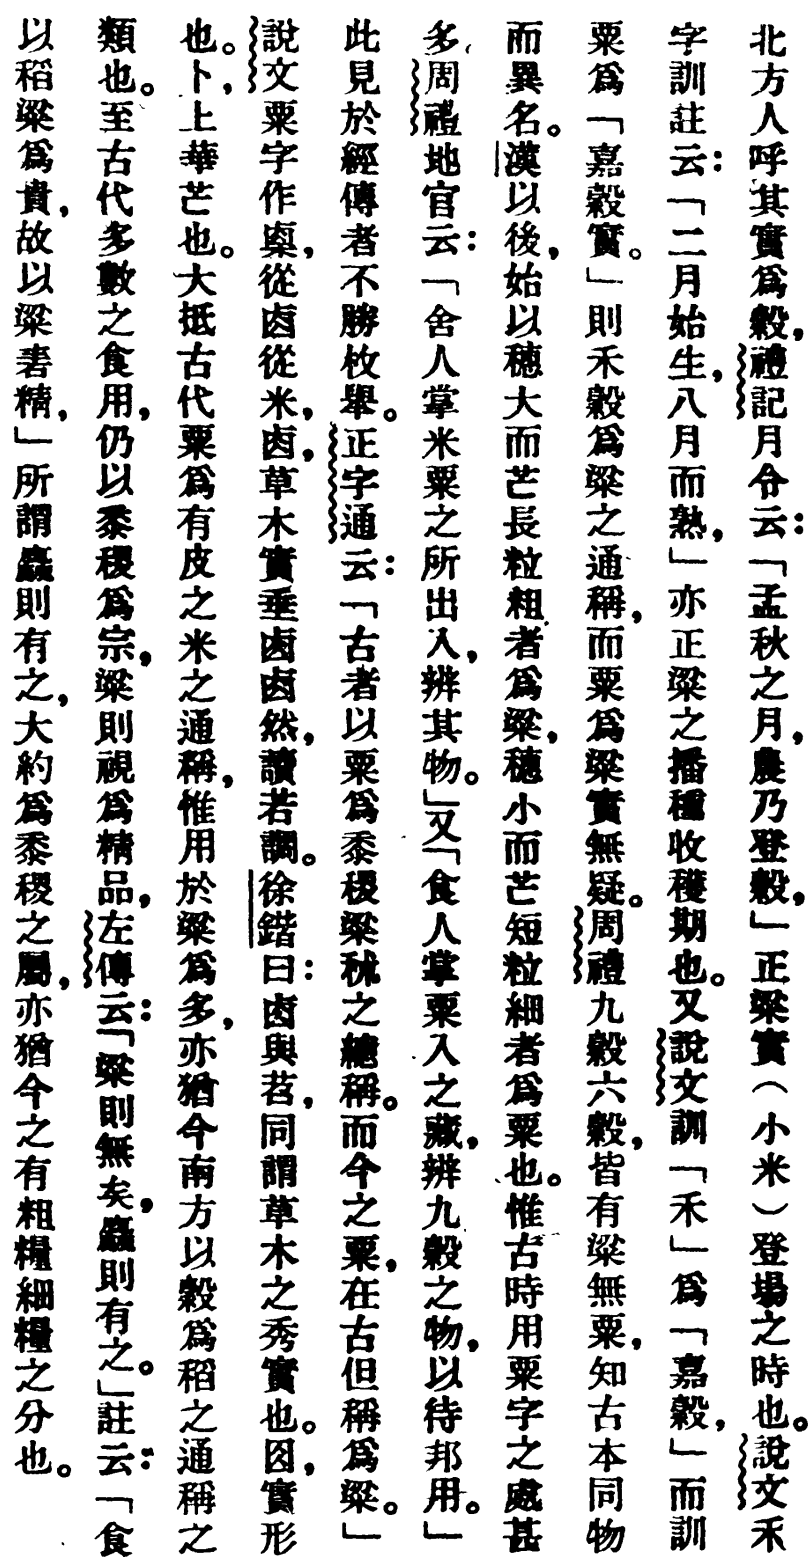 北方人呼其實爲穀，禮記月令云：「孟秋之月，農乃登穀，」正梁實（小米）登場之時也。說文禾
字訓註云：「二月始生，八月而熟，」亦正梁之播種收穫期也。又說文訓「禾」爲「嘉穀，」而訓
粟爲「嘉穀實。」則禾穀爲梁之通稱，而粟爲梁實無疑。周禮九穀六穀，皆有梁無粟，知古本同物
而異名。漢以後，始以穗大而芒長粒粗者爲梁，穗小而芒短粒細者爲粟也。惟古時用粟字之處甚
多，周禮地官云：「舍人掌米粟之所出入，辨其物。」又「食人掌粟入之藏，辨九穀之物，以待邦用。」
此見於經傳者不勝枚舉。正字通云：「古者以粟爲黍稷梁秫之總稱。而今之粟，在古但稱爲梁。」
說文粟字作㮚，從卤從米，卤，草木實垂卤卤然，讀若調。徐鍇曰：卤與苕，同謂草木之秀實也。囟，實形
也。卜，上華芒也。大抵古代粟爲有皮之米之通稱，惟用於梁爲多，亦猶今南方以穀爲稻之通稱之
類也。至古代多數之食用，仍以黍稷爲宗，梁則視爲精品，左傳云：「梁則無矣，麤則有之。」註云：「食
以稻梁爲貴，故以梁書精，」所謂麤則有之，大約爲黍稷之屬，亦猶今之有粗糧細糧之分也。